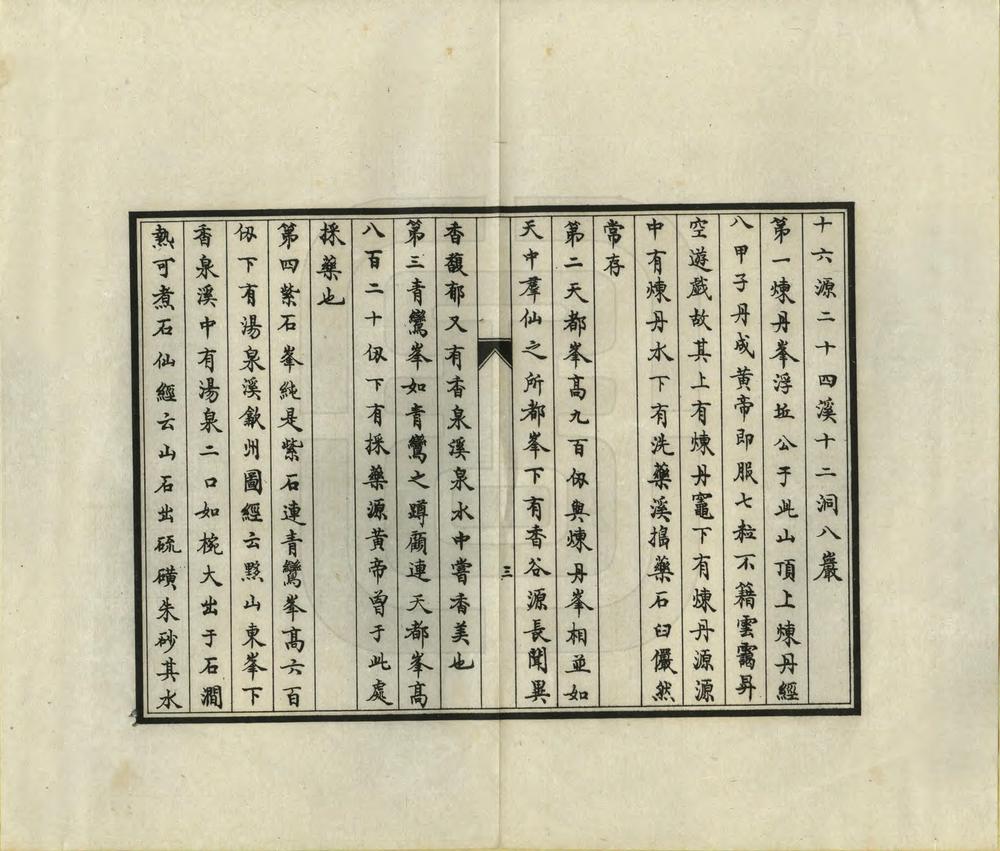 十六源二十四溪十二洞八巖
第一煉丹峯浮丘公于此山頂上煉丹經
八甲子丹成黄帝即服七粒不籍雲靄昇
空遊戲故其上有煉丹竈下有煉丹源源
中有煉丹水下有洗藥溪搗藥石臼儼然
常存
第二天都峯高九百仞與煉丹峯相並如
天中羣仙之所都峯下有香谷源長聞異
三
香馥郁又有香泉溪泉水中嘗香美也
第三青鸞峯如青鸞之蹲顧連天都峯高
八百二十仞下有採藥源黄帝曾于此處
採藥也
第四紫石峯純是紫石連青鸞峯高六百
仞下有湯泉溪歙州圖經云黟山東峯下
香泉溪中有湯泉二口如椀大出于石澗
熱可煮石仙經云山石出硫磺朱砂其水